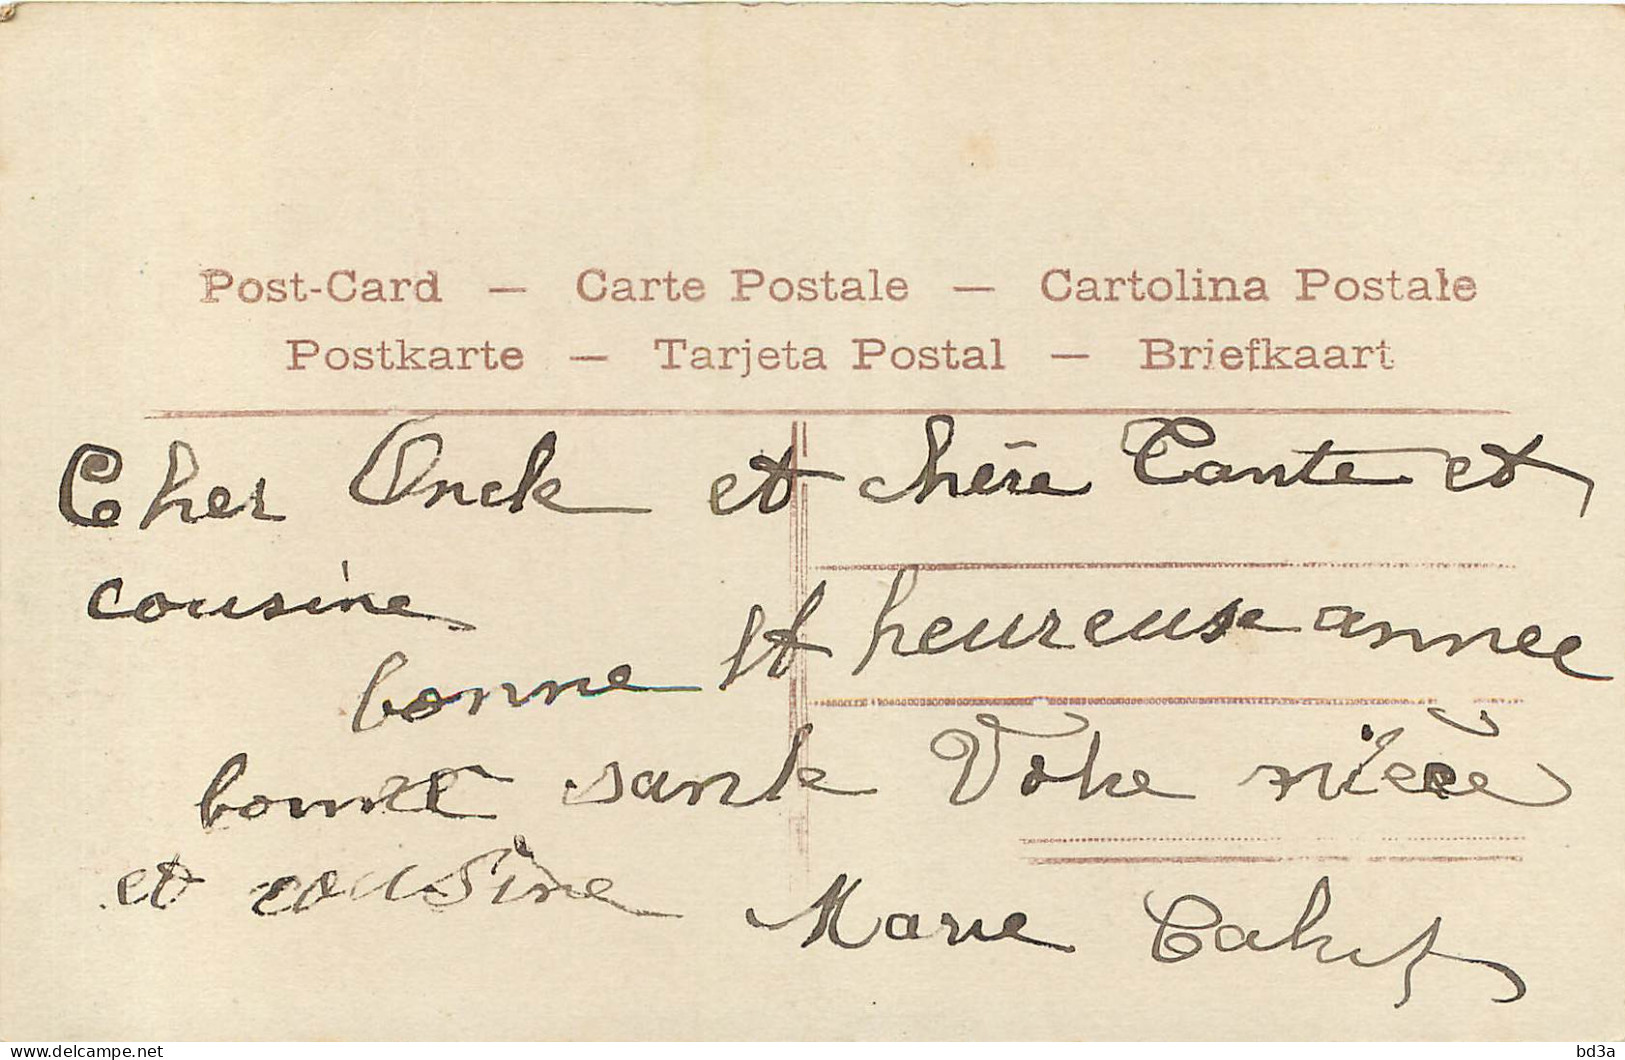 Post-Card — Carte Postale — Cartolina Postale
Postkarte — Tarjeta Postal — Briefkaart
Cher Oncle et chère Tante et
cousine
bonne et heureuse annee
bonne sante Votre nièce
et cousine Marie
www.delcampe.net
bd3a